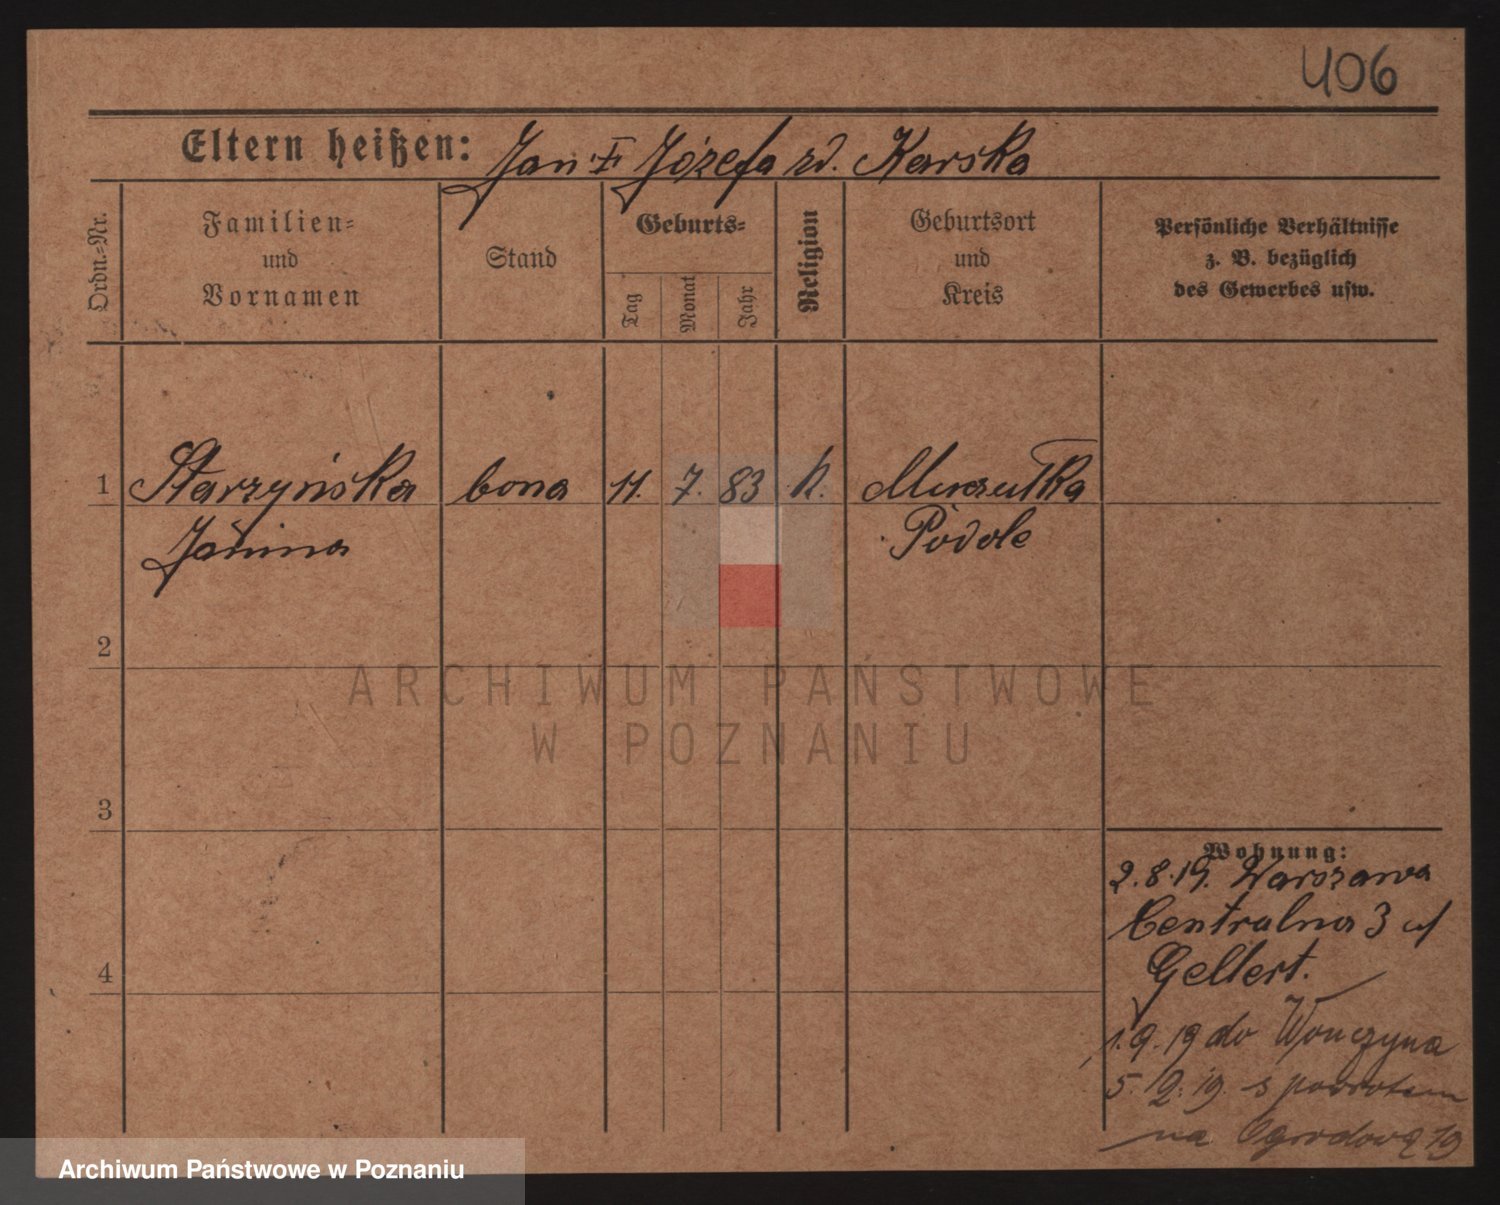 406
Eltern heißen: Jan i Józefa zd. Karska
Ordn.-Nr.
Familien-
und
Vornamen
Stand
Geburts-
Tag
Monat
Jahr
Religion
Geburtsort
und
Kreis
Persönliche Verhältnisse
z. B. bezüglich
des Gewerbes usw.
1 Starzyńska bona 11. 7. 83 k.
Janina Podole
2
3
4
ARCHIWUM PAŃSTWOWE
W POZNANIU
Wohnung:
2.8.19. Warszawa
Centralna 3 u/
Gellert.
1.9.19 do
5.12.19. z powrotem
na Ogrodową 19
Archiwum Państwowe w Poznaniu